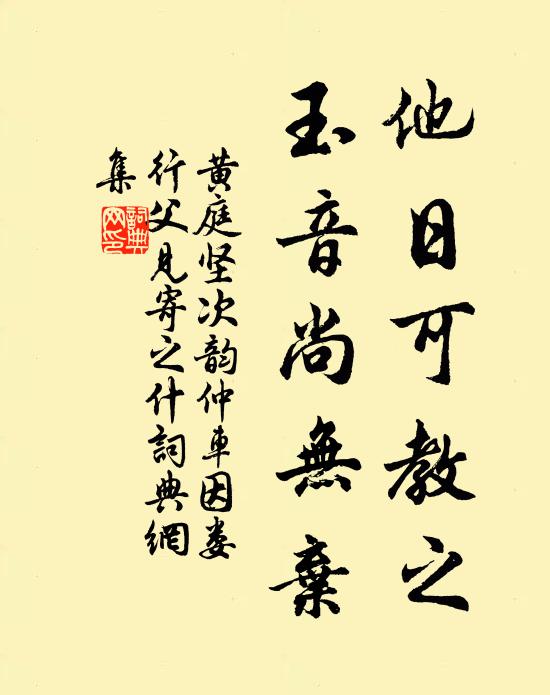 他日可教之
玉音尚無棄
黄庭坚次韵仲车因娄
行父見寄之什詞典網
集
詞典网印